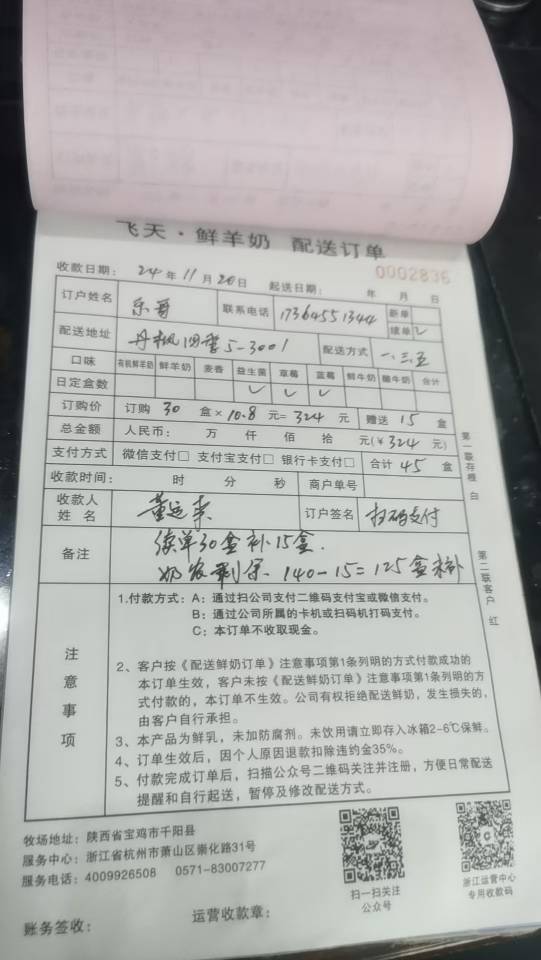 飞天·鲜羊奶 配送订单
收款日期： 24 年 11 月 20 日 起送日期： 年 月 日
0002836
订户姓名 乐哥 联系电话 17364551344 新单
续单 ✓
配送地址 丹枫四季5-3001 配送方式 一、三、五
口味 有机鲜羊奶 鲜羊奶 麦香 益生菌 草莓 蓝莓 鲜牛奶 酸牛奶 合计
日定盒数 ✓ ✓ ✓
订购价 订购 30 盒×10.8 元= 324 元 赠送 15 盒
总金额 人民币： 万 仟 佰 拾 元(¥324 元)
支付方式 微信支付□ 支付宝支付□ 银行卡支付□ 合计 45 盒
收款时间： 时 分 秒 商户单号
收款人姓名 董运来 订户签名 扫码支付
备注 续单30盒补15盒.
奶农剩余 140-15=125盒未补
第一联存根 白
第二联客户 红
注意事项
1.付款方式：A：通过扫公司支付二维码支付宝或微信支付。
B：通过公司所属的卡机或扫码机打码支付。
C：本订单不收取现金。
2、客户按《配送鲜奶订单》注意事项第1条列明的方式付款成功的
本订单生效，客户未按《配送鲜奶订单》注意事项第1条列明的方
式付款的，本订单不生效。公司有权拒绝配送鲜奶，发生损失的，
由客户自行承担。
3、本产品为鲜乳，未加防腐剂。未饮用请立即存入冰箱2-6℃保鲜。
4、订单生效后，因个人原因退款扣除违约金35%。
5、付款完成订单后，扫描公众号二维码关注并注册，方便日常配送
提醒和自行起送，暂停及修改配送方式。
牧场地址：陕西省宝鸡市千阳县
服务中心：浙江省杭州市萧山区崇化路31号
服务电话：4009926508 0571-83007277
扫一扫关注
公众号
浙江运营中心
专用收款码
账务签收： 运营收款章：